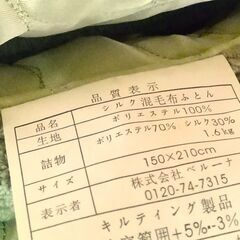 品質表示
シルク混毛布ふとん
生地 ポリエステル100%
詰物 ポリエステル70% シルク30%
1.6kg
サイズ 150×210cm
表示者 株式会社ベルーナ
0120-74-7315
キルティング製品
範囲+5%-3%